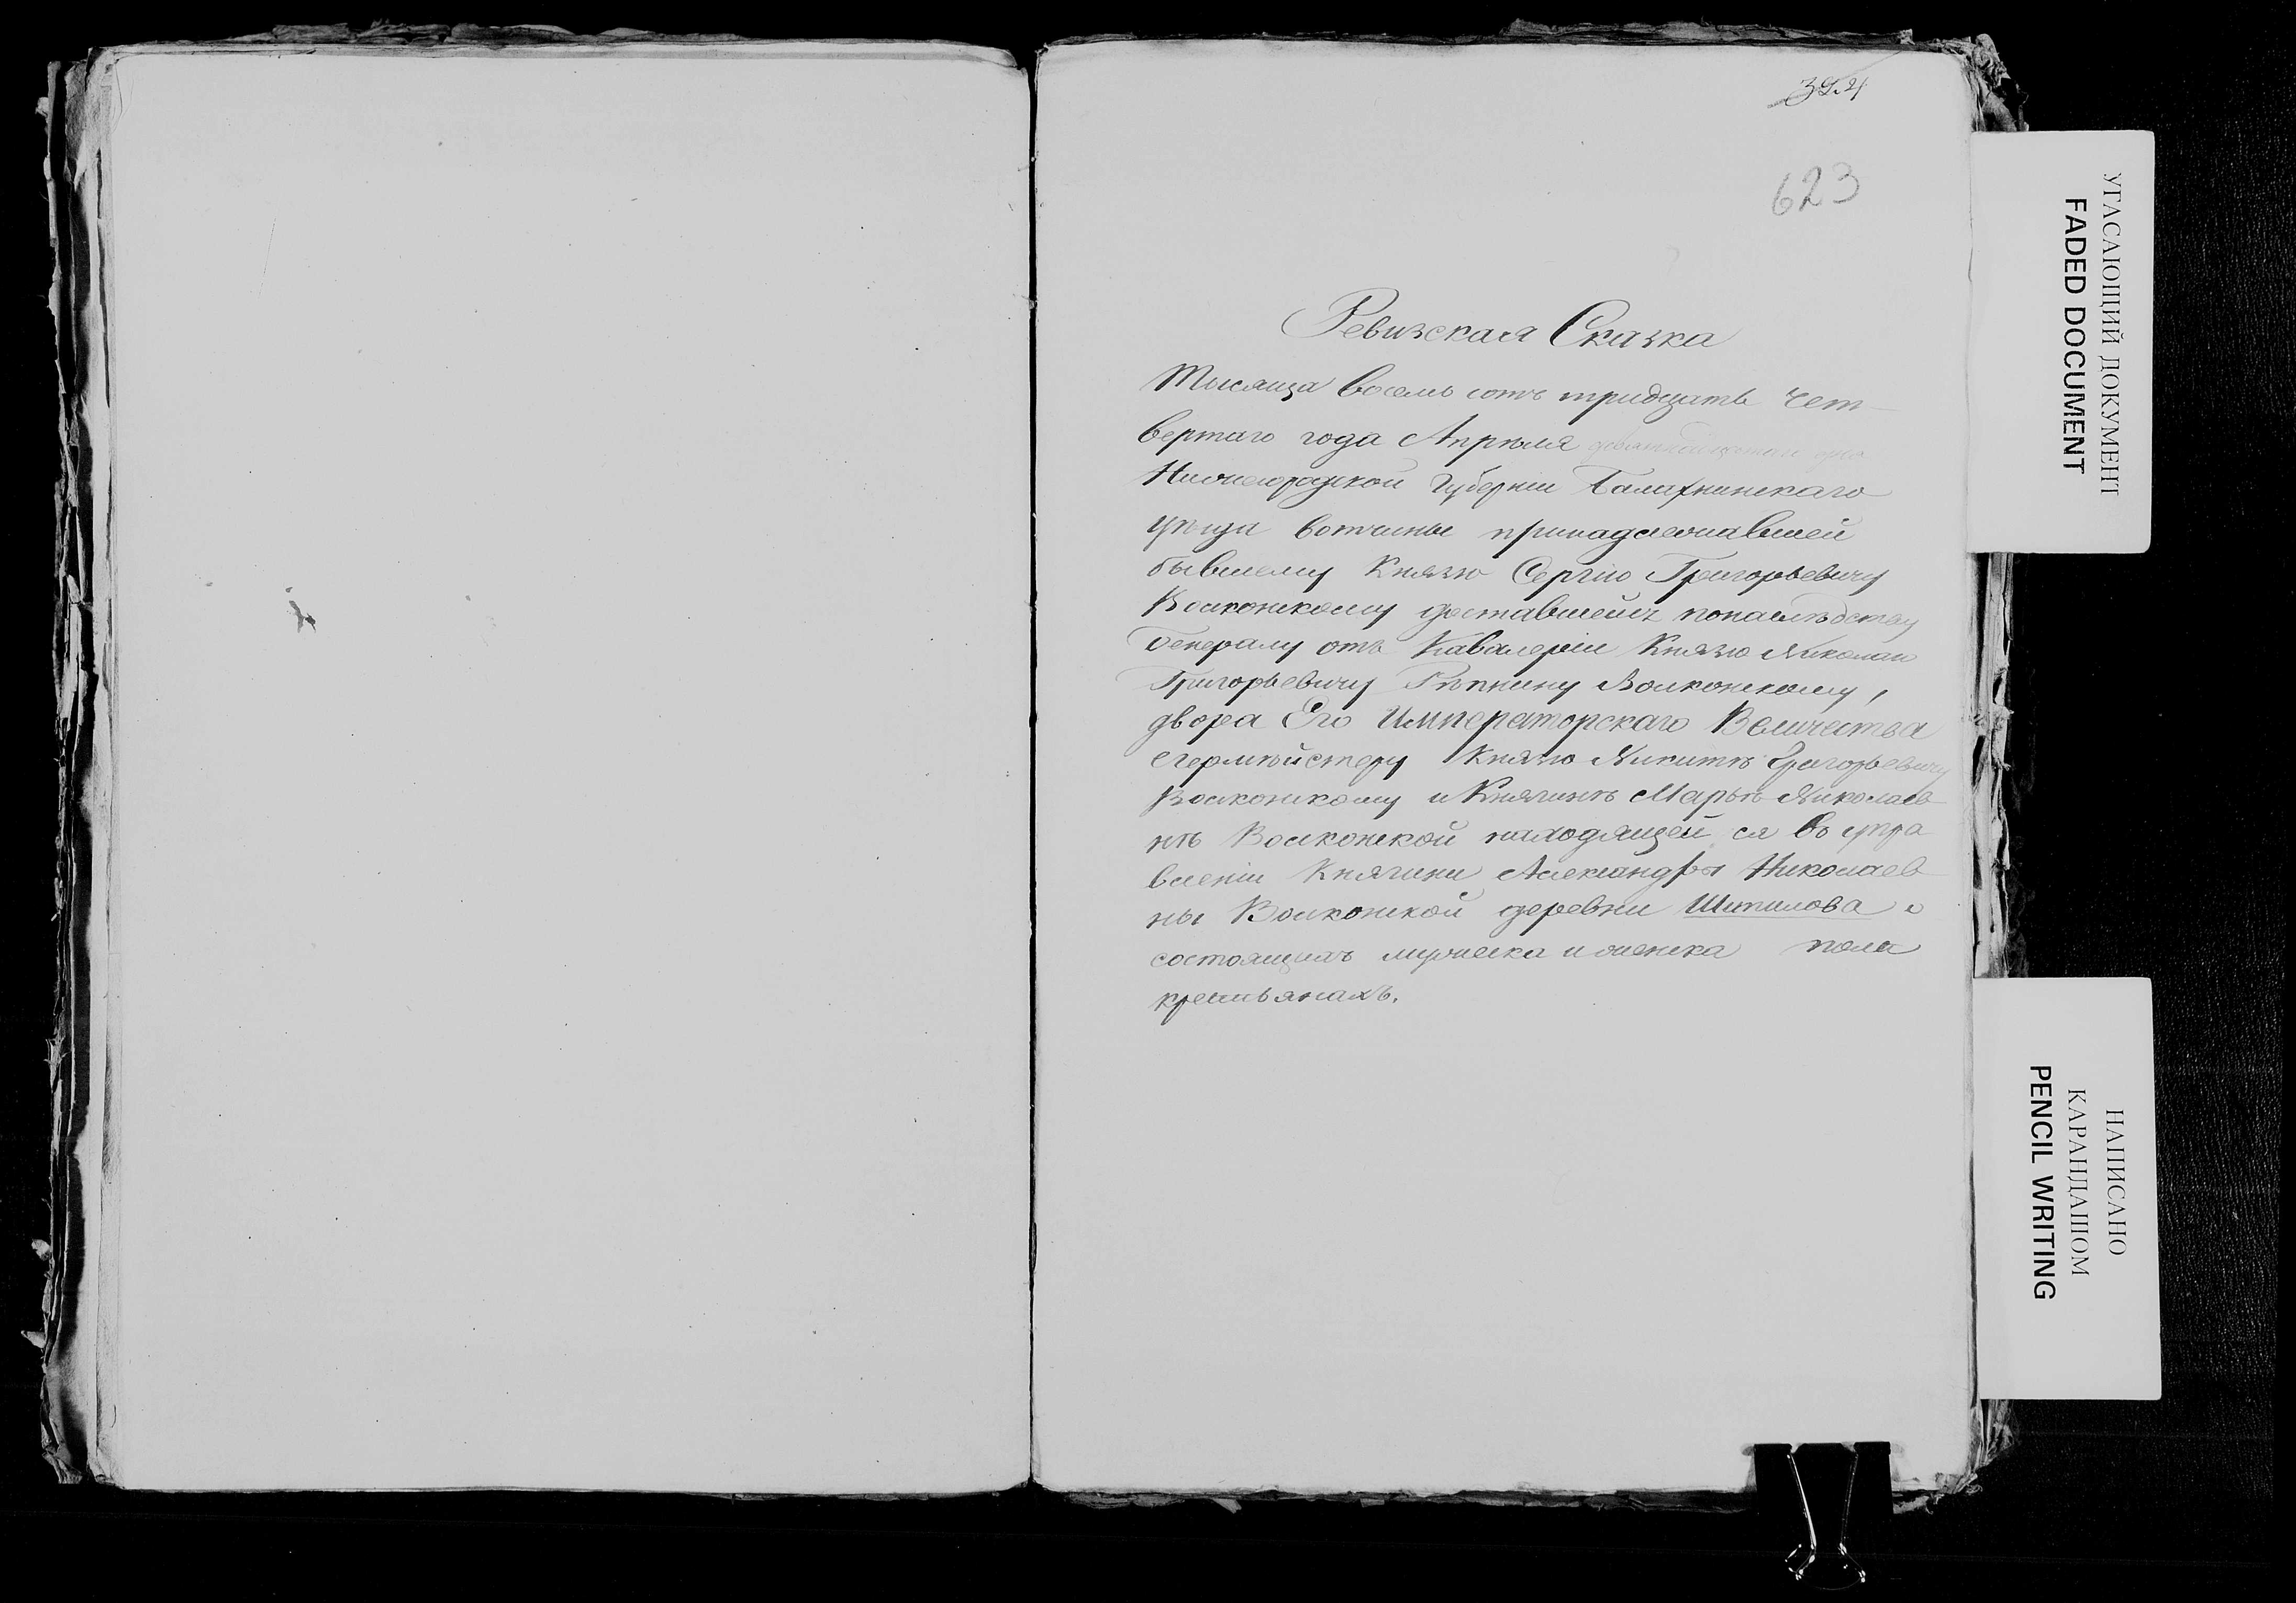 324
623
Ревизская Сказка
Тысяща восемь сотъ тридцать чет
вертаго года Апреля
Нижегородской Губерніи Балахнинскаго
уѣзда вотчины принадлежавшей
бывшему Князю Сергію Григорьевичу
Волконскому доставшейся понаследству
Генералу отъ Кавалеріи Князю Николаю
Григорьевичу Рѣпнину Волконскому,
двора Его Императорскаго Величества
егермейстеру Князю Никитѣ Григорьевичу
Волконскому и Княгинѣ Марьѣ Николаев
нѣ Волконской находящей ся въ упра
вленіи Княгини Александры Николаев
ны Волконской деревни Шипилова о
состоящихъ мужеска и женска пола
крестьянахъ.
УГАСАЮЩИЙ ДОКУМЕНТ
FADED DOCUMENT
НАПИСАНО
КАРАНДАШОМ
PENCIL WRITING